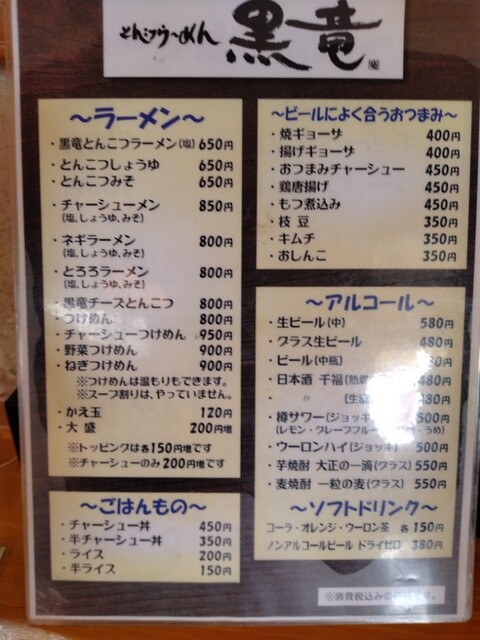 とんこつらーめん 黒竜
～ラーメン～
・黒竜とんこつラーメン(塩) 650円
・とんこつしょうゆ 650円
・とんこつみそ 650円
・チャーシューメン 850円
(塩、しょうゆ、みそ)
・ネギラーメン 800円
(塩、しょうゆ、みそ)
・とろろラーメン 800円
(塩、しょうゆ、みそ)
・黒竜チーズとんこつ 800円
・つけめん 800円
・チャーシューつけめん 950円
・野菜つけめん 900円
・ねぎつけめん 900円
※つけめんは温もりもできます。
※スープ割りは、やっていません。
・かえ玉 120円
・大盛 200円増
※トッピングは各150円増です
※チャーシューのみ200円増です
～ごはんもの～
・チャーシュー丼 450円
・半チャーシュー丼 350円
・ライス 200円
・半ライス 150円
～ビールによく合うおつまみ～
・焼ギョーザ 400円
・揚げギョーザ 400円
・おつまみチャーシュー 450円
・鶏唐揚げ 450円
・もつ煮込み 450円
・枝豆 350円
・キムチ 350円
・おしんこ 350円
～アルコール～
・生ビール(中) 580円
・グラス生ビール 480円
・ビール(中瓶) 80円
・日本酒 千福(熱燗 480円
・ 〃 (生 480円
・樽サワー(ジョッキ 500円
(レモン・グレープフルー ・うめ)
・ウーロンハイ(ジョッキ) 500円
・芋焼酎 大正の一滴(グラス) 550円
・麦焼酎 一粒の麦(グラス) 550円
～ソフトドリンク～
コーラ・オレンジ・ウーロン茶 各150円
ノンアルコールビール ドライゼロ 380円
※消費税込みの です。